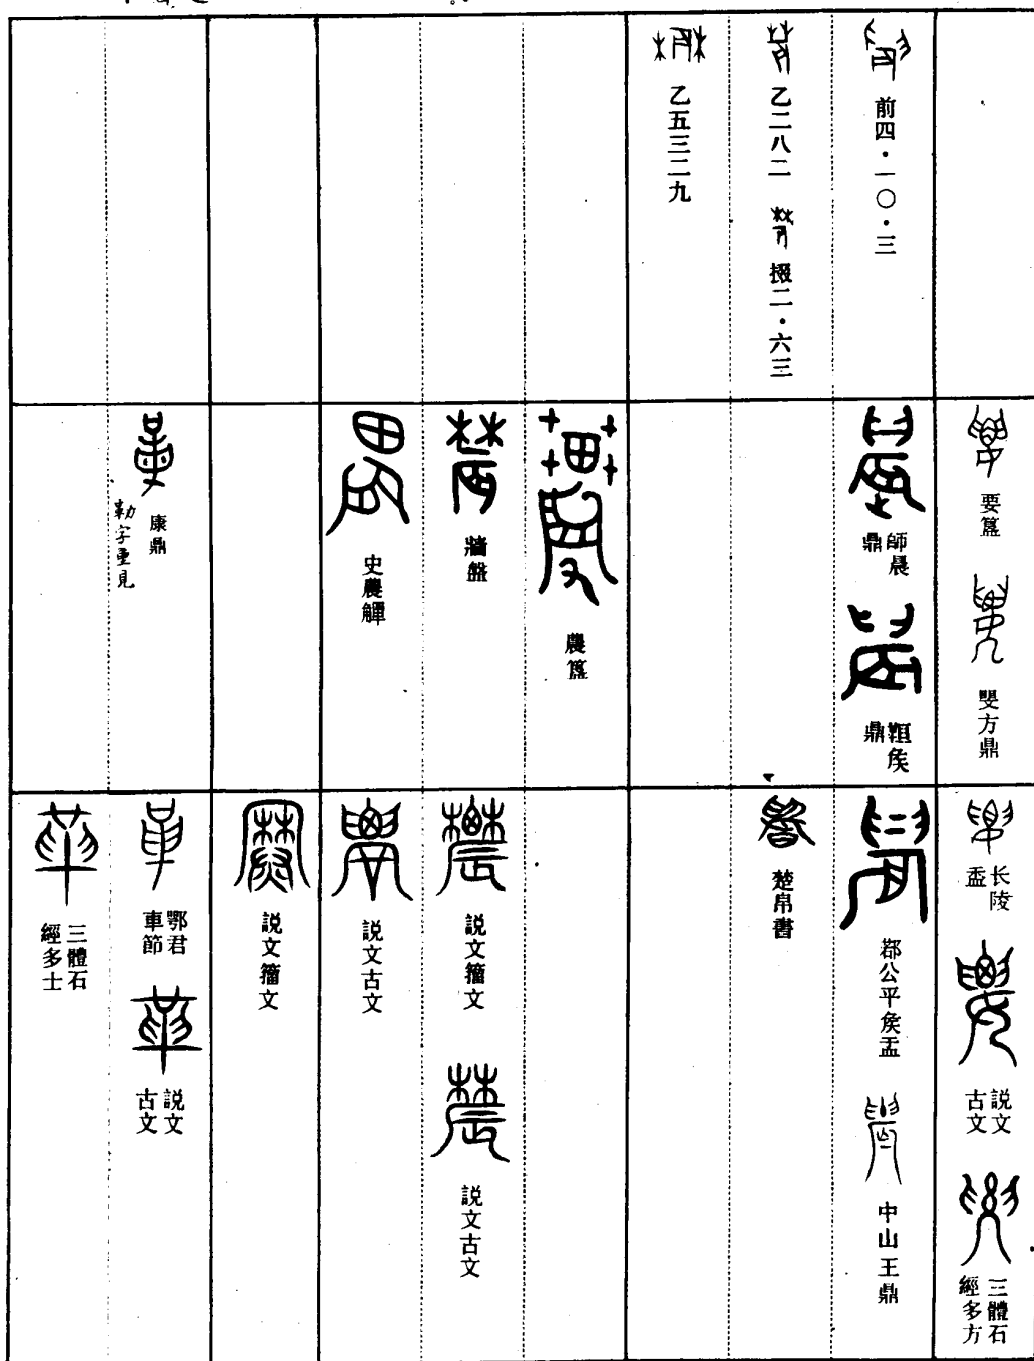 前四·一〇·三
乙二八二
掇二·六三
乙五三二九
要簋
㛐方鼎
師晨鼎
䣄侯鼎
農簋
牆盤
史農觶
康鼎
勒字重見
长陵盉
説文古文
三體石經多方
郡公平侯盂
中山王鼎
楚帛書
説文籀文
説文古文
説文古文
説文籀文
鄂君車節
説文古文
三體石經多士